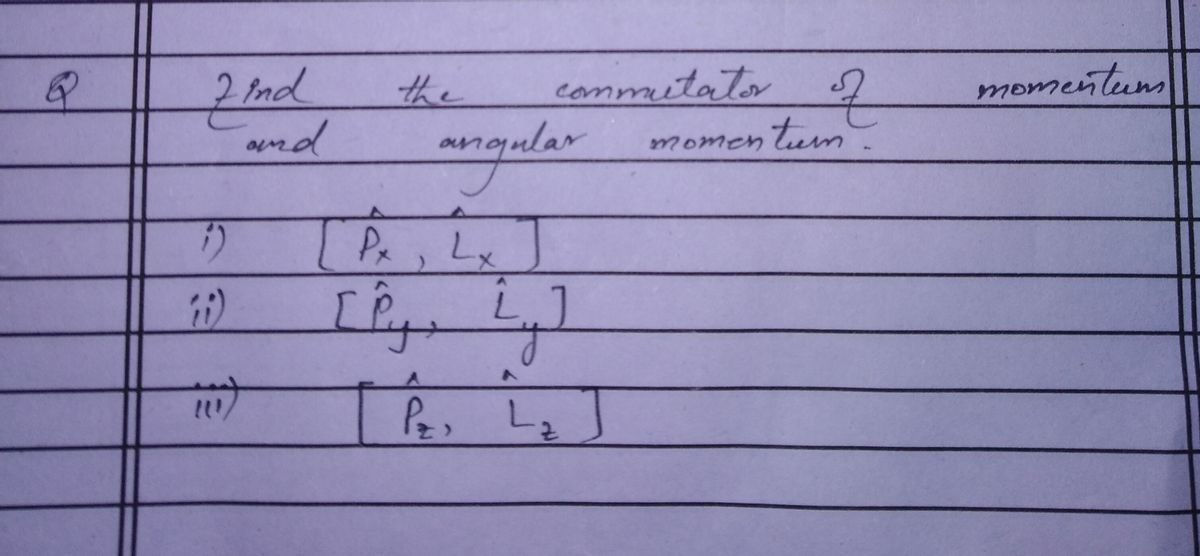 Q Find the commutator of momentum
and angular momentum.
i) [ P̂x , L̂x ]
ii) [ P̂y, L̂y ]
iii) [ P̂z, L̂z ]